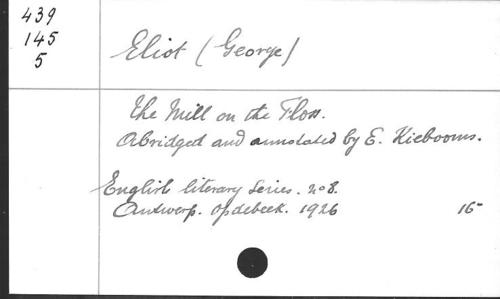 439
145
5
Eliot (George)
The Mill on the Floss.
Abridged and annotated by E. Kiebooms.
English literary Series. no 8.
Antwerp. Opdebeek. 1926 16-